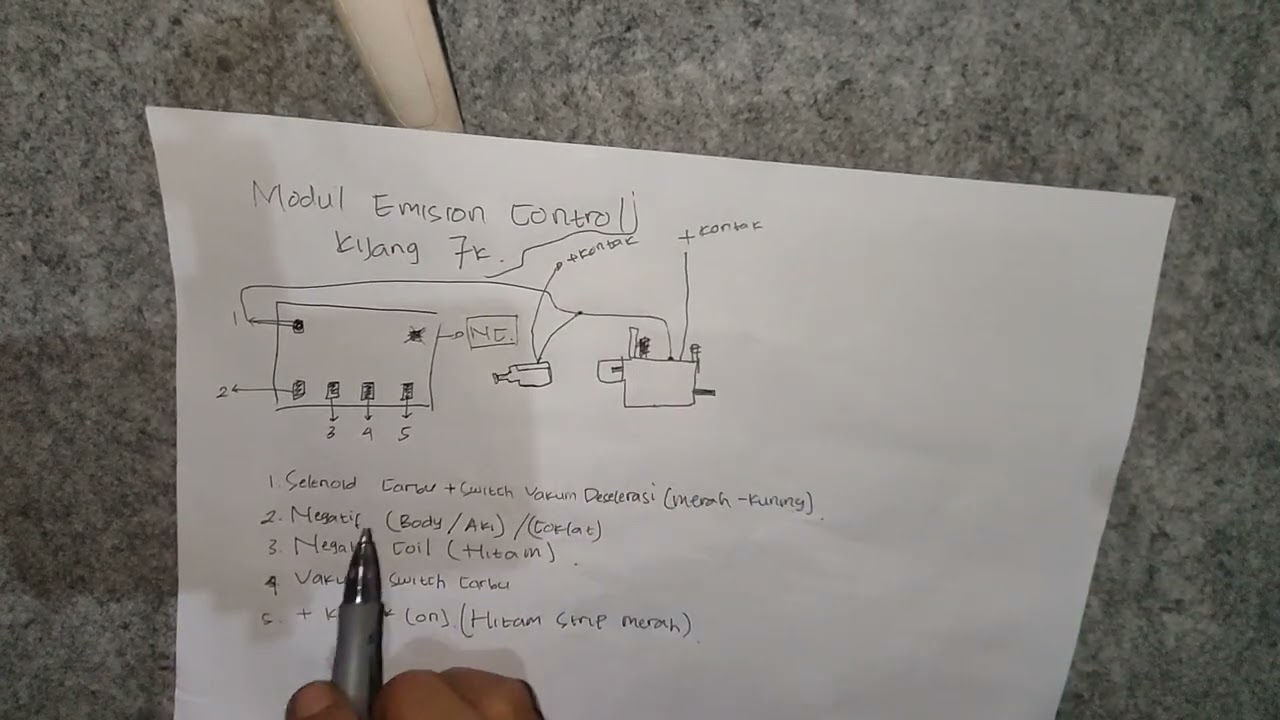 Modul Emision Control
Kijang 7k.
+kontak
+ kontak
1
NC.
2
3 4 5
1. Selenoid Carbu + Switch Vakum Deselerasi (merah - kuning)
2. Negatif (Body / Aki) / (Coklat)
3. Coil (Hitam).
4 Switch Carbu
5. + (on) (Hitam strip merah).